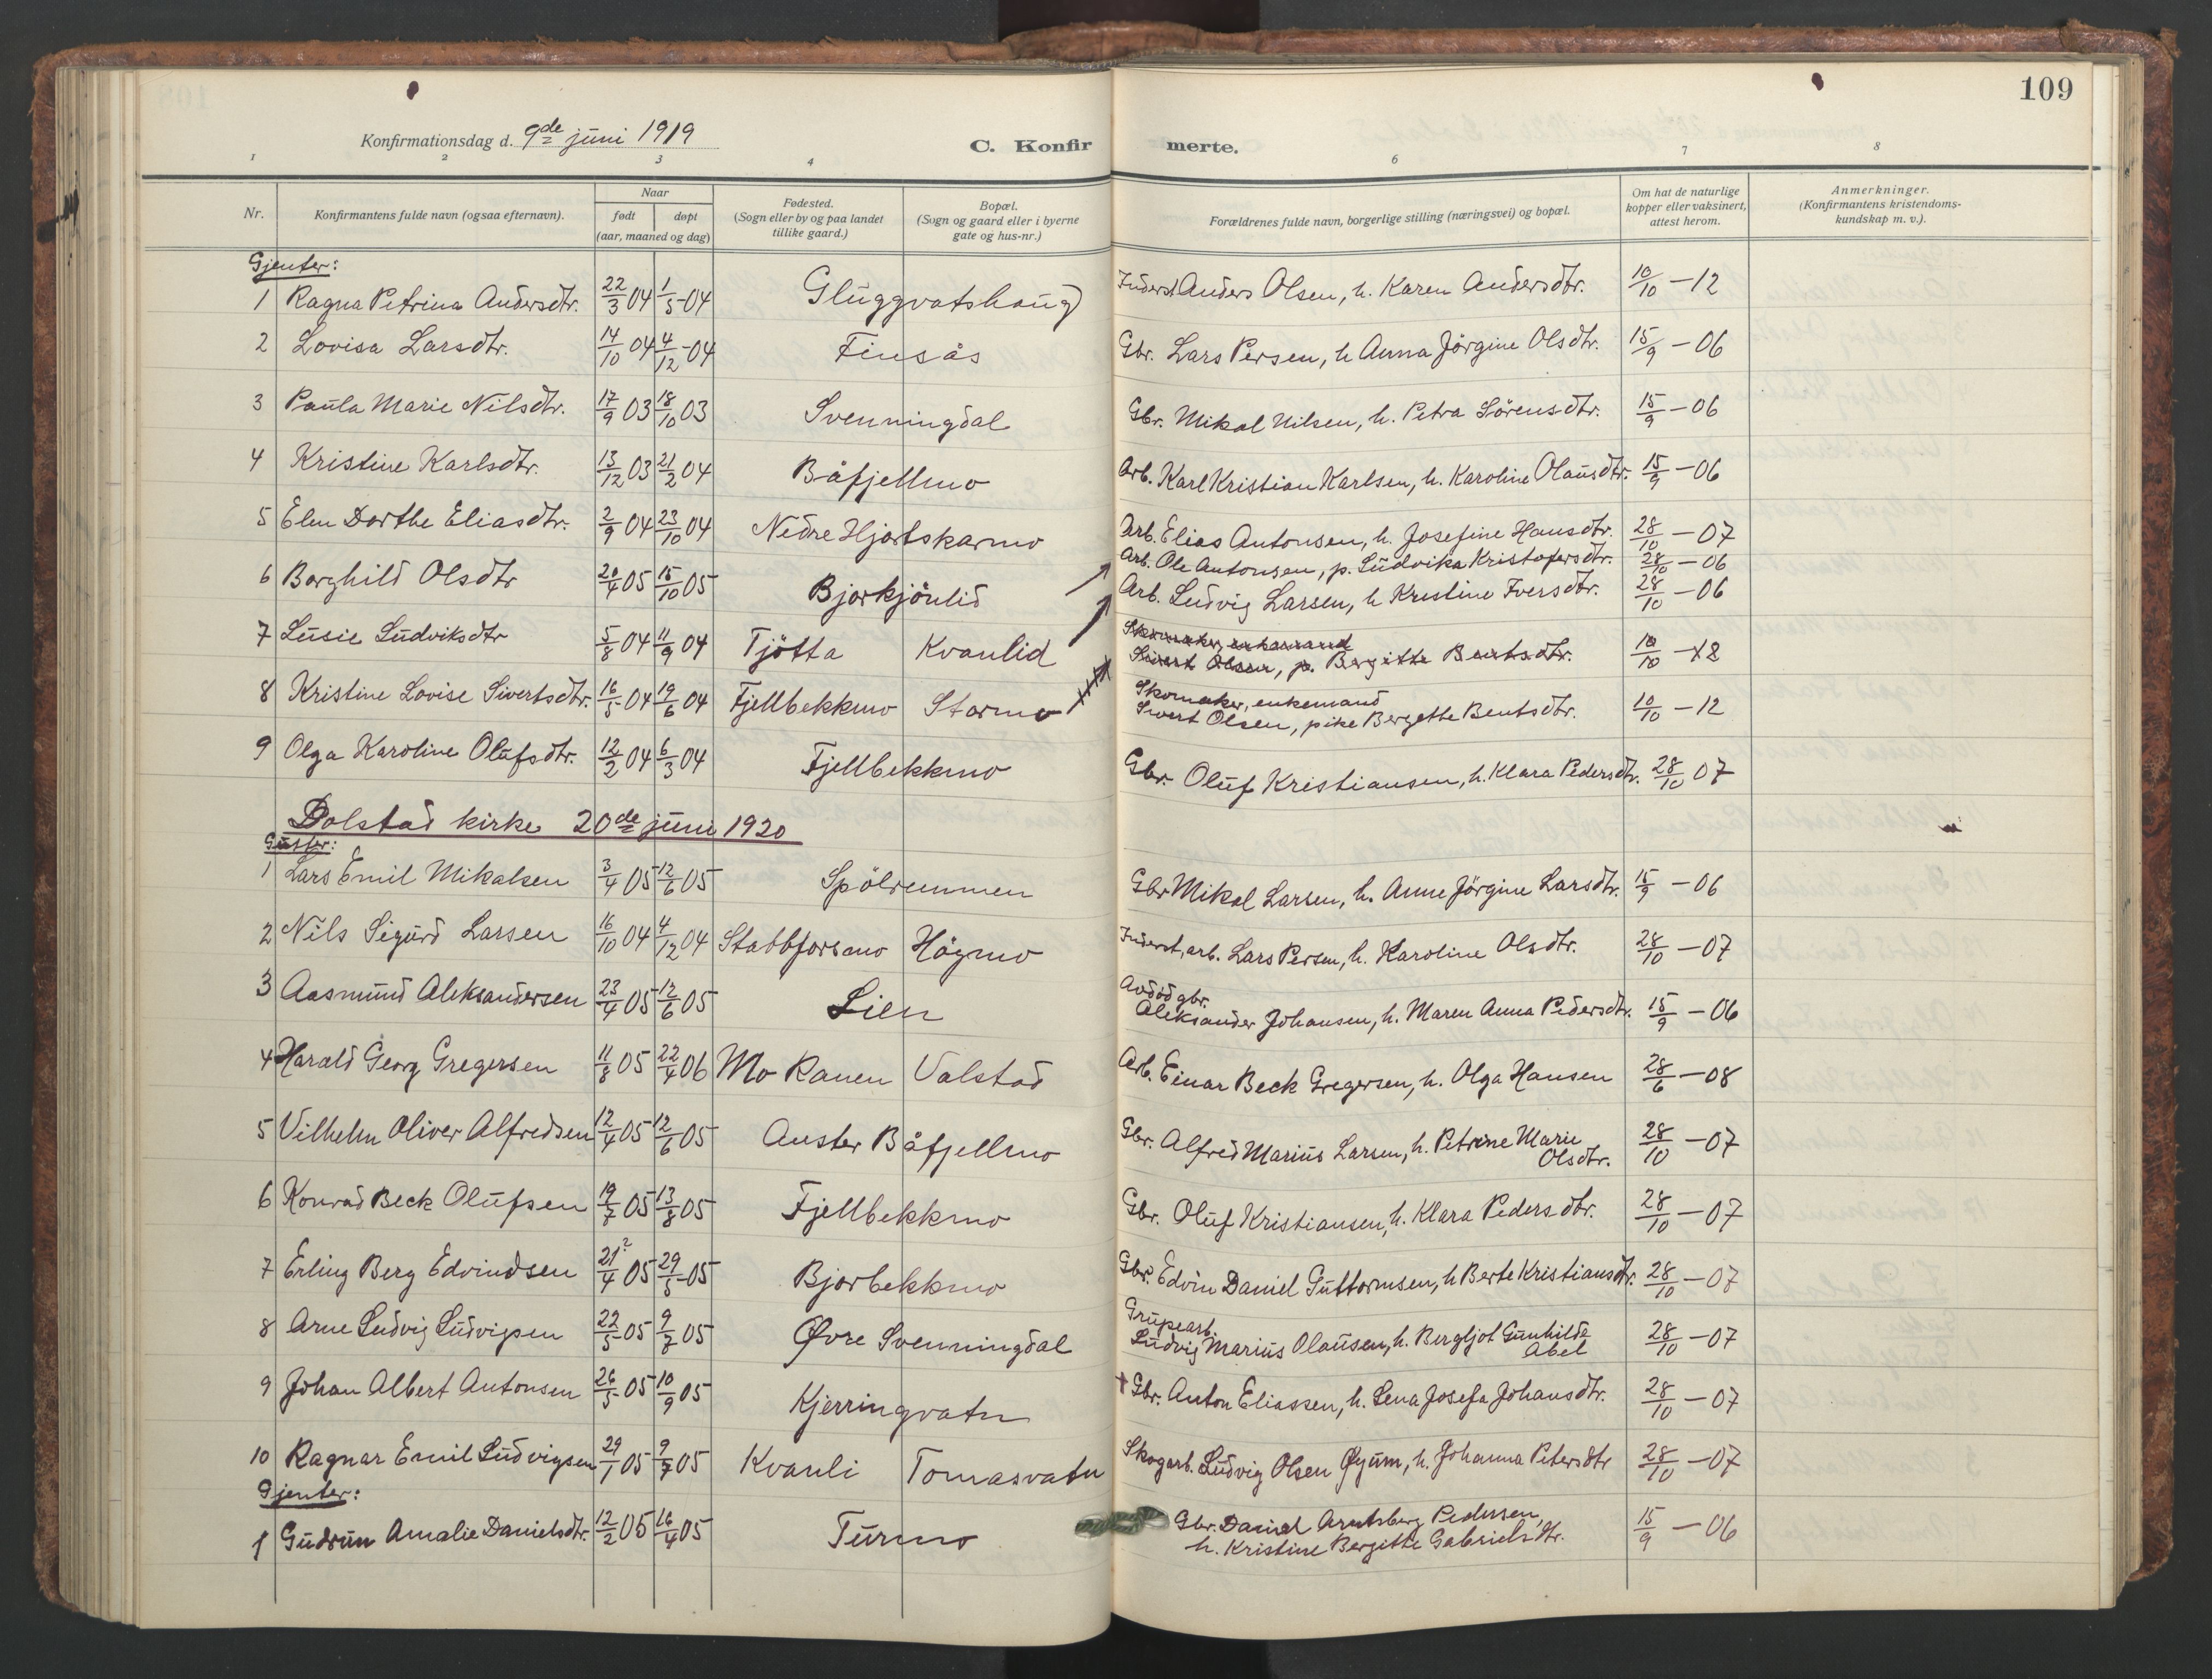 109
Konfirmationsdag d. 9de juni 1919
C. Konfirmerte.
1 2 3 4 6 7 8
Nr. Konfirmantens fulde navn (ogsaa efternavn). Naar født døpt (aar, maaned og dag) Fødested. (Sogn eller by og paa landet tillike gaard.) Bopæl. (Sogn og gaard eller i byerne gate og hus-nr.) Forældrenes fulde navn, borgerlige stilling (næringsvei) og bopæl. Om hat de naturlige kopper eller vaksinert, attest herom. Anmerkninger. (Konfirmantens kristendoms-kundskap m. v.).
Gjenter:
1 Ragna Petrina Andersdtr. 22/3 04 1/5-04 Gluggvatshaug Inderst Anders Olsen, h. Karen Andersdtr. 10/10 - 12
2 Lovisa Larsdtr. 14/10 04 4/12-04 Finsås Gbr. Lars Persen, h Anna Jörgine Olsdtr. 15/9 - 06
3 Paula Marie Nilsdtr. 17/9 03 18/10 03 Svenningdal Gbr. Mikal Nilsen, h. Petra Sörensdtr. 15/9 - 06
4 Kristine Karlsdtr. 13/12 03 21/2 04 Båfjellmo Arb. Karl Kristian Karlsen, h. Karoline Olausdtr. 15/9 - 06
5 Elen Dorthe Eliasdtr. 2/9 04 23/10 04 Nedre Hjortskarmo Arb. Elias Antonsen, h. Josefine Hansdtr. 28/10 - 07
6 Borghild Olsdtr 20/4 05 15/10 05 Bjorkjönlid Arb. Ole Antonsen, p. Ludvika Kristofersdtr. 28/10 - 06
7 Lusie Ludviksdtr 5/8 04 11/9 04 Tjötta Kvanlid Arb. Ludvig Larsen, h Kristine Iversdtr. 28/10 - 06
Skomaker, enkemand
Sivert Olsen, p. Bergitte Bentsdtr. 10/10 - 12
8 Kristine Lovise Sivertsdtr. 16/5 04 19/6 04 Fjellbekkmo Stormo Skomaker, enkemand
Sivert Olsen, pike Bergette Bentsdtr. 10/10 - 12
9 Olga Karoline Olufsdtr. 12/2 04 6/3 04 Fjellbekkmo Gbr. Oluf Kristiansen, h. Klara Pedersdtr. 28/10 07
Dolstad kirke 20de juni 1920
Gutter:
1 Lars Emil Mikalsen 3/4 05 12/6 05 Spölremmen Gbr Mikal Larsen, h. Anne Jörgine Larsdtr. 15/9 - 06
2 Nils Sigurd Larsen 16/10 04 4/12 04 Stabbforsmo Högmo Inderst, arb. Lars Persen, h. Karoline Olsdtr. 28/10 - 07
3 Aasmund Aleksandersen 23/4 05 12/6 05 Lien Avdöd gbr.
Aleksander Johansen, h. Maren Anna Pedersdtr. 15/9 - 06
4 Harald Georg Gregersen 11/8 05 22/4 06 Mo Ranen Valstad Arb. Einar Beck Gregersen, h. Olga Hansen 28/6 - 08
5 Vilhelm Oliver Alfredsen 12/4 05 12/6 05 Auster Båfjellmo Gbr. Alfred Marius Larsen, h. Petrine Marie
Olsdtr. 28/10 - 07
6 Konrad Beck Olufsen 19/7 05 13/8 05 Fjellbekkmo Gbr. Oluf Kristiansen, h. Klara Pedersdtr. 28/10 - 07
7 Erling Berg Edvindsen 21?/4 05 29/5-05 Bjorbekkmo Gbr. Edvin Daniel Guttormsen, h Berte Kristiansdtr. 28/10 - 07
8 Arne Ludvig Ludvigsen 22/5 05 9/7 05 Øvre Svenningdal Grupearb.
Ludvig Marius Olausen, h. Bergljot Gunhilde
Abel 28/10 - 07
9 Johan Albert Antonsen 26/5 05 10/9 05 Kjerringvatn † Gbr. Anton Eliassen, h. Lena Josefa Johansdtr. 28/10 - 07
10 Ragnar Emil Ludvigsen 29/1 05 9/7 05 Kvanli Tomasvatn Skogarb. Ludvig Olsen Øyum, h. Johanna Petersdtr 28/10 - 07
Gjenter:
1 Gudrun Amalie Danielsdtr. 12/2 05 16/4 05 Turmo Gbr. Daniel Arntsberg Pedersen,
h. Kristine Bergitte Gabrielsdtr. 15/9 - 06